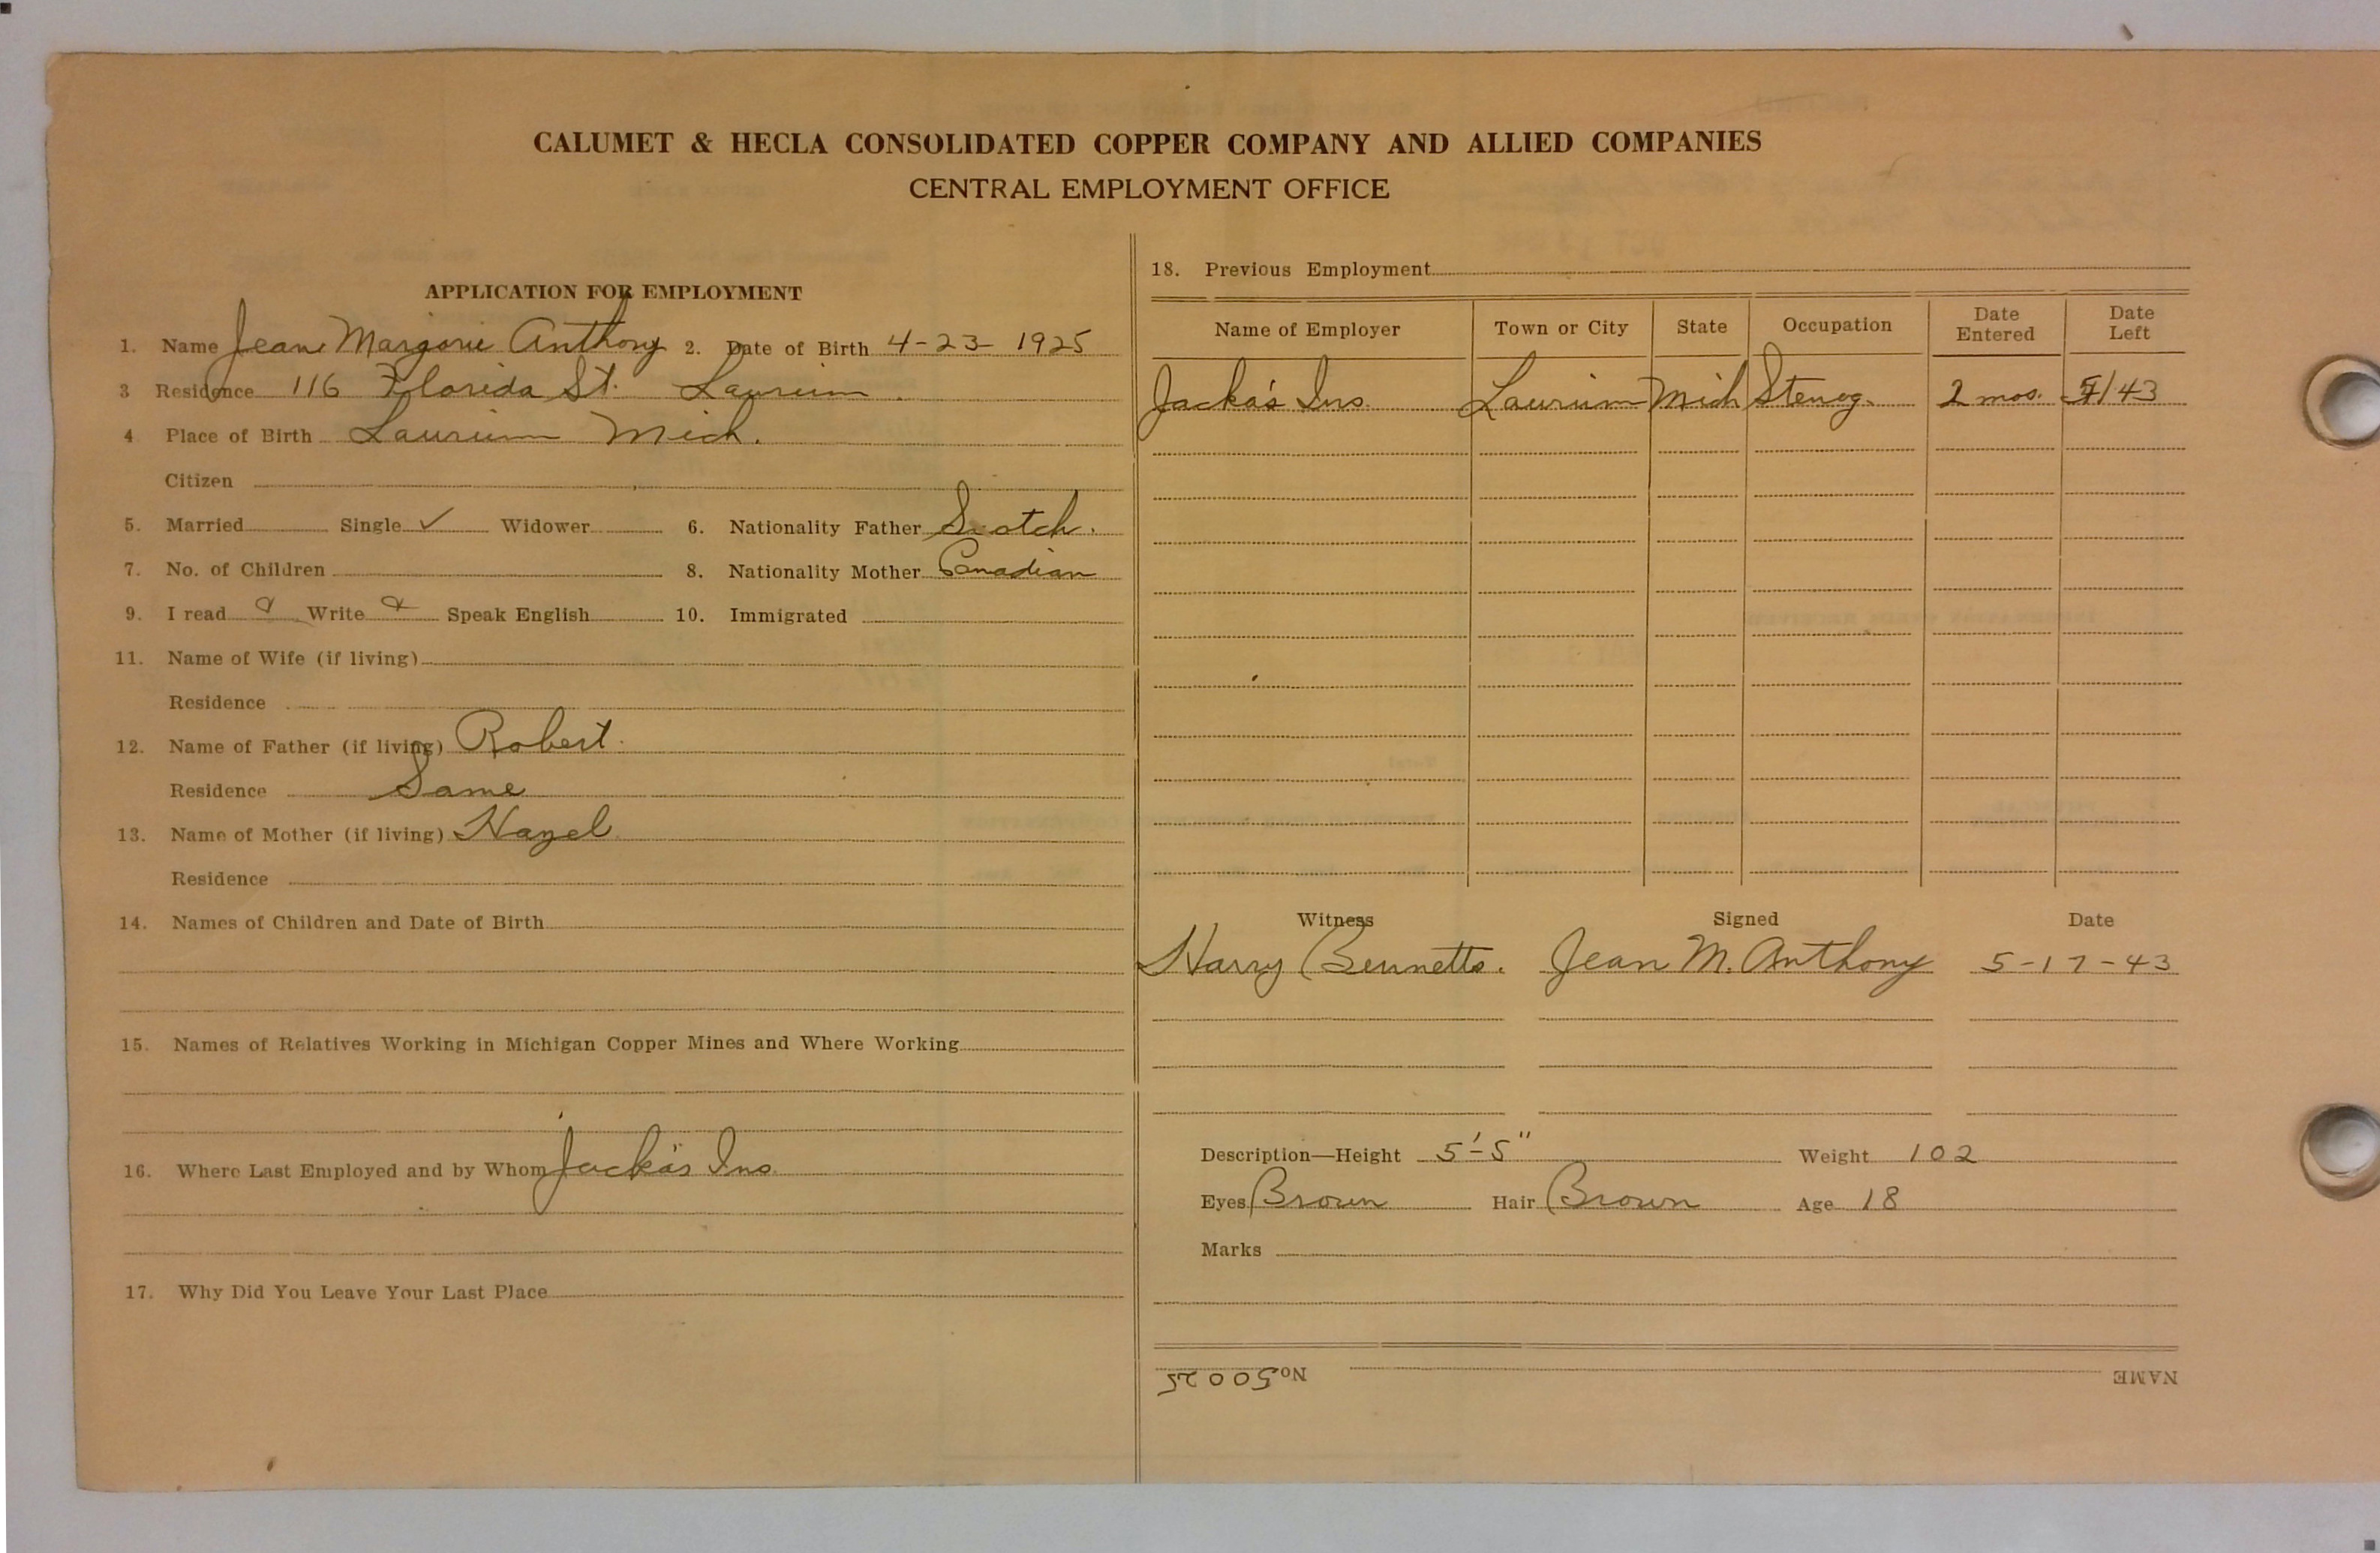 CALUMET & HECLA CONSOLIDATED COPPER COMPANY AND ALLIED COMPANIES
CENTRAL EMPLOYMENT OFFICE
APPLICATION FOR EMPLOYMENT
1. Name Jean Margorie Anthony 2. Date of Birth 4-23-1925
3 Residence 116 Florida St. Laurium
4 Place of Birth Laurium Mich.
Citizen
5. Married Single ✓ Widower 6. Nationality Father Scotch.
7. No. of Children 8. Nationality Mother Canadian
9. I read Write Speak English 10. Immigrated
11. Name of Wife (if living)
Residence
12. Name of Father (if living) Robert.
Residence Same
13. Name of Mother (if living) Hazel
Residence
14. Names of Children and Date of Birth
15. Names of Relatives Working in Michigan Copper Mines and Where Working
16. Where Last Employed and by Whom Jacka's Ins.
17. Why Did You Leave Your Last Place
18. Previous Employment
Name of Employer Town or City State Occupation Date Entered Date Left
Jacka's Ins. Laurium Mich Stenog. 2 mos. 5/43
Witness Signed Date
Harry Bennetts. Jean M. Anthony 5-17-43
Description—Height 5'-5" Weight 102
Eyes Brown Hair Brown Age 18
Marks
NAME No. 50025